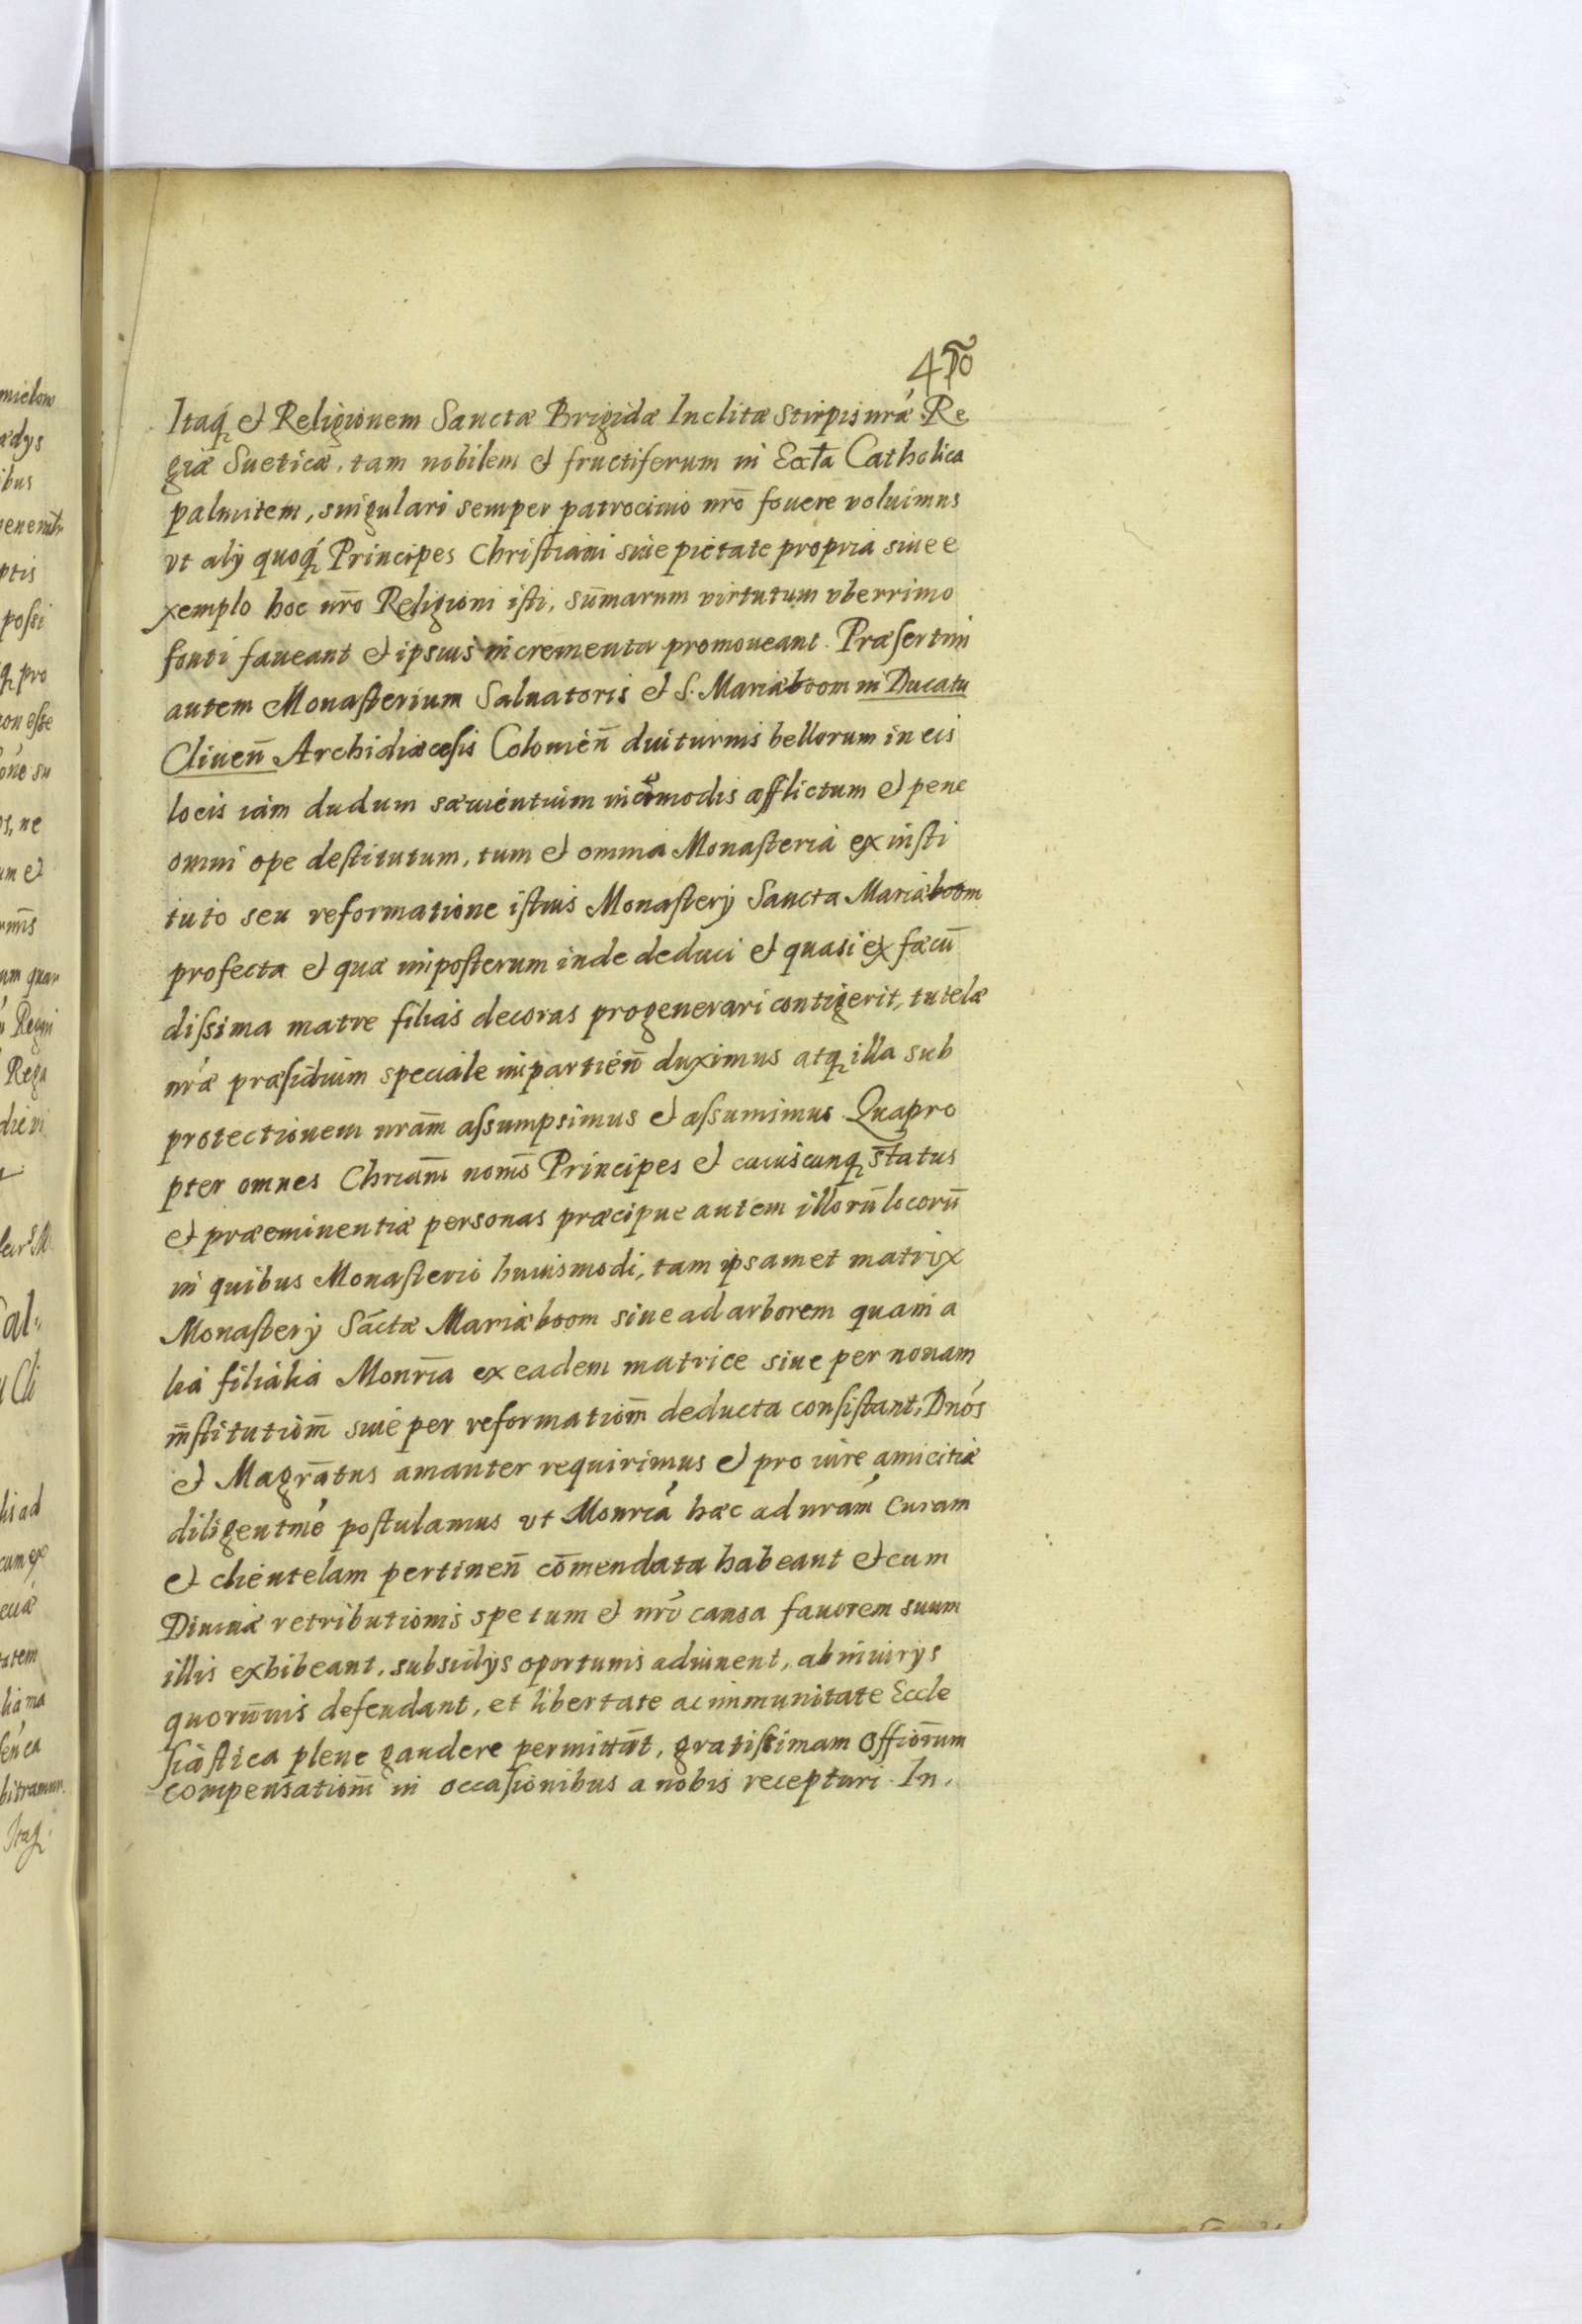 4to
Itaq́ et Religionem Sanctæ Brigidæ Inclitæ stirpis nrǽ Re
giæ Sueticæ, tam nobilem et fructiferum in Eccl̄a Catholica
palmitem, singulari semper patrocinio nrō fouere voluimus
vt alÿ quoq́ Principes Christiani siue pietate propria siue e
xemplo hoc nrō Religioni isti, sum̄arum virtutum vberrimo
fonti faueant et ipsius incrementa promoueant. Præsertim
autem Monasterium Saluatoris et S. Mariæboom in Ducatu
Cliuen̄ Archidiæcesis Colonien̄ diuturnis bellorum in eis
locis iam dudum sæuientium incōmodis afflictum et pene
omni ope destitutum, tum et omnia Monasteria ex insti
tuto seu reformatione istius Monasterÿ Sancta Mariæboom
profecta et quæ imposterum inde deduci et quasi ex fæcun̄
dissima matre filias decoras progenerari contigerit, tutelæ
nrǽ præsidium speciale impartien̄ duximus atq illa sub
protectionem nram̄ assumpsimus et assumimus. Quapro
pter omnes Chrianī nomīs Principes et cuiuscunq status
et præeminentiæ personas præcipue autem illorū locorū
in quibus Monasterio huiusmodi, tam ipsamet matrix
Monasterÿ Sāctæ Mariæboom siue ad arborem quam a
lia filialia Monrīa ex eadem matrice siue per nouam
institutiōm siue per reformatiōm deducta consistant, Dnós
et Magrātus amanter requirimus et pro iure amicitiæ
diligentmé postulamus vt Monriá hæc ad nrám curam
et clientelam pertinen̄ com̄endata habeant et cum
Diuinæ retributionis spe tum et nrī causa fauorem suum
illis exhibeant, subsidÿs oportunis adiuuent, ab iniurÿs
quorum̄uis defendant, et libertate ac immunitate Eccle
siastica plene gaudere permittāt, gratissimam Officiorūm
compensatiōm in occasionibus a nobis recepturi. In.